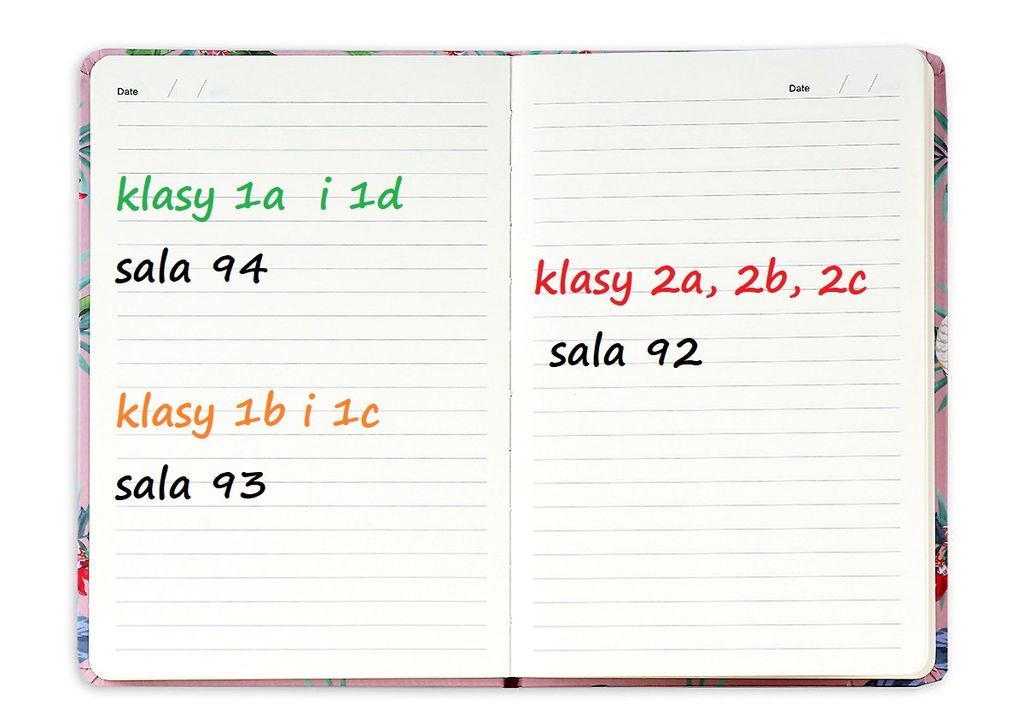 Date / /
klasy 1a i 1d
sala 94
klasy 1b i 1c
sala 93
Date / /
klasy 2a, 2b, 2c
sala 92